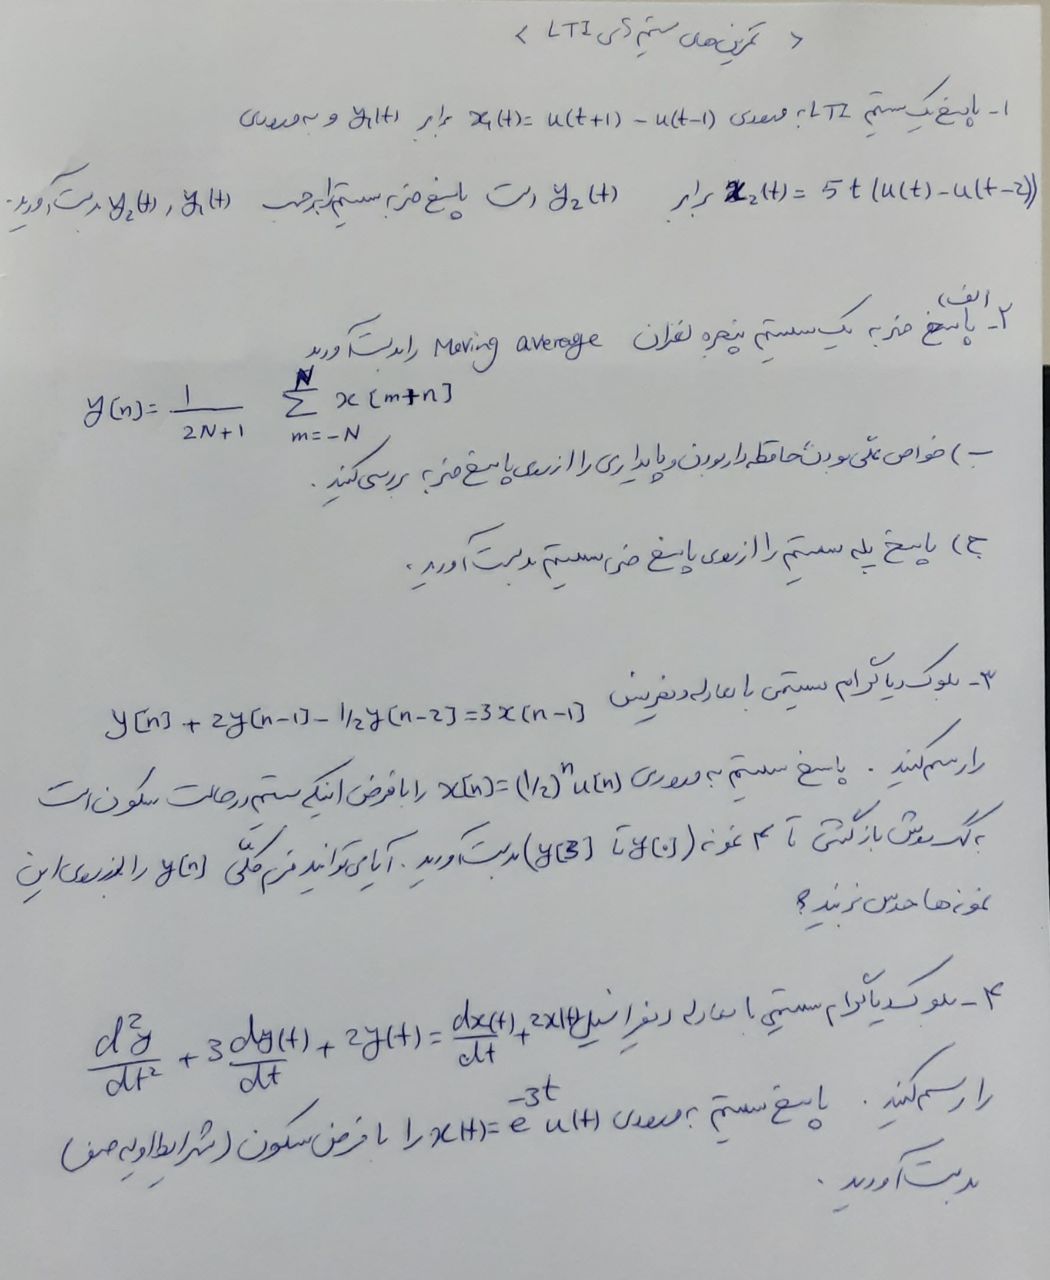 < تمرین های سیستم های LTI >
۱- پاسخ یک سیستم LTI به ورودی x₁(t) = u(t+1) - u(t-1) برابر y₁(t) و به ورودی
x₂(t) = 5t(u(t) - u(t-2)) برابر y₂(t) است پاسخ ضربه سیستم را برحسب y₁(t) , y₂(t) بدست آورید.
۲- الف) پاسخ ضربه یک سیستم پنجره لغزان Moving average را بدست آورید
y[n] = \frac{1}{2N+1} \sum_{m=-N}^{N} x[m+n]
ب) خواص علّی بودن، حافظه دار بودن و پایداری را از روی پاسخ ضربه بررسی کنید.
ج) پاسخ پله سیستم را از روی پاسخ ضربه سیستم بدست آورید.
۳- بلوک دیاگرام سیستمی با معادله تفاضلی y[n] + 2y[n-1] - 1/2 y[n-2] = 3x[n-1]
را رسم کنید. پاسخ سیستم به ورودی x[n] = (1/2)ⁿ u[n] را با فرض اینکه سیستم در حالت سکون است
به کمک روش بازگشتی تا ۴ نمونه (y[0] تا y[3]) بدست آورید. آیا می توانید فرم کلّی y[n] را از روی این
نمونه ها حدس بزنید؟
۴- بلوک دیاگرام سیستمی با معادله دیفرانسیل \frac{d²y}{dt²} + 3\frac{dy(t)}{dt} + 2y(t) = \frac{dx(t)}{dt} + 2x(t)
را رسم کنید. پاسخ سیستم به ورودی x(t) = e^{-3t} u(t) را با فرض سکون (شرایط اولیه صفر)
بدست آورید.